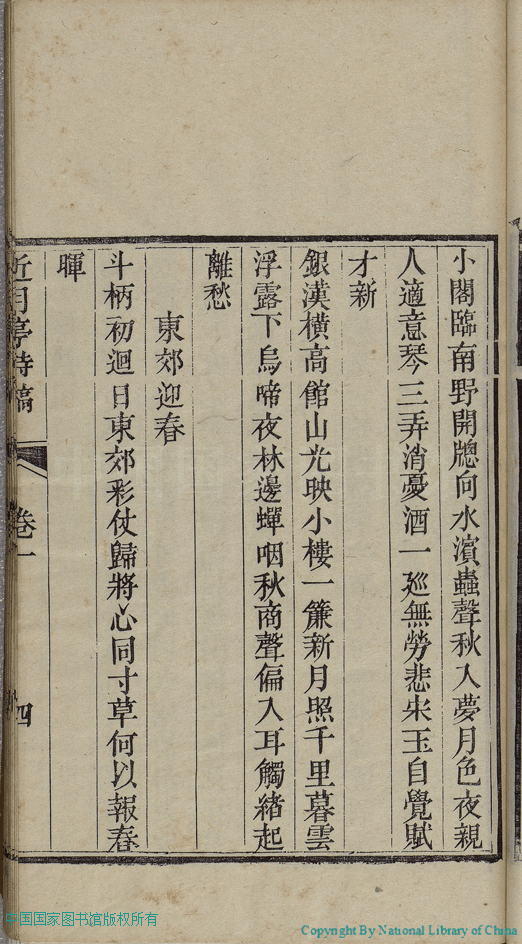 小閣臨南野開牕向水濱蟲聲秋入夢月色夜親
人適意琴三弄消憂酒一廵無勞悲宋玉自覺賦
才新
銀漢橫高館山光映小樓一簾新月照千里暮雲
浮露下烏啼夜林邊蟬咽秋商聲偏入耳觸緒起
離愁
東郊迎春
斗柄初迴日東郊彩仗歸將心同寸草何以報春
暉
近月亭詩稿
卷一
四
中国国家图书馆版权所有
Copyright By National Library of China